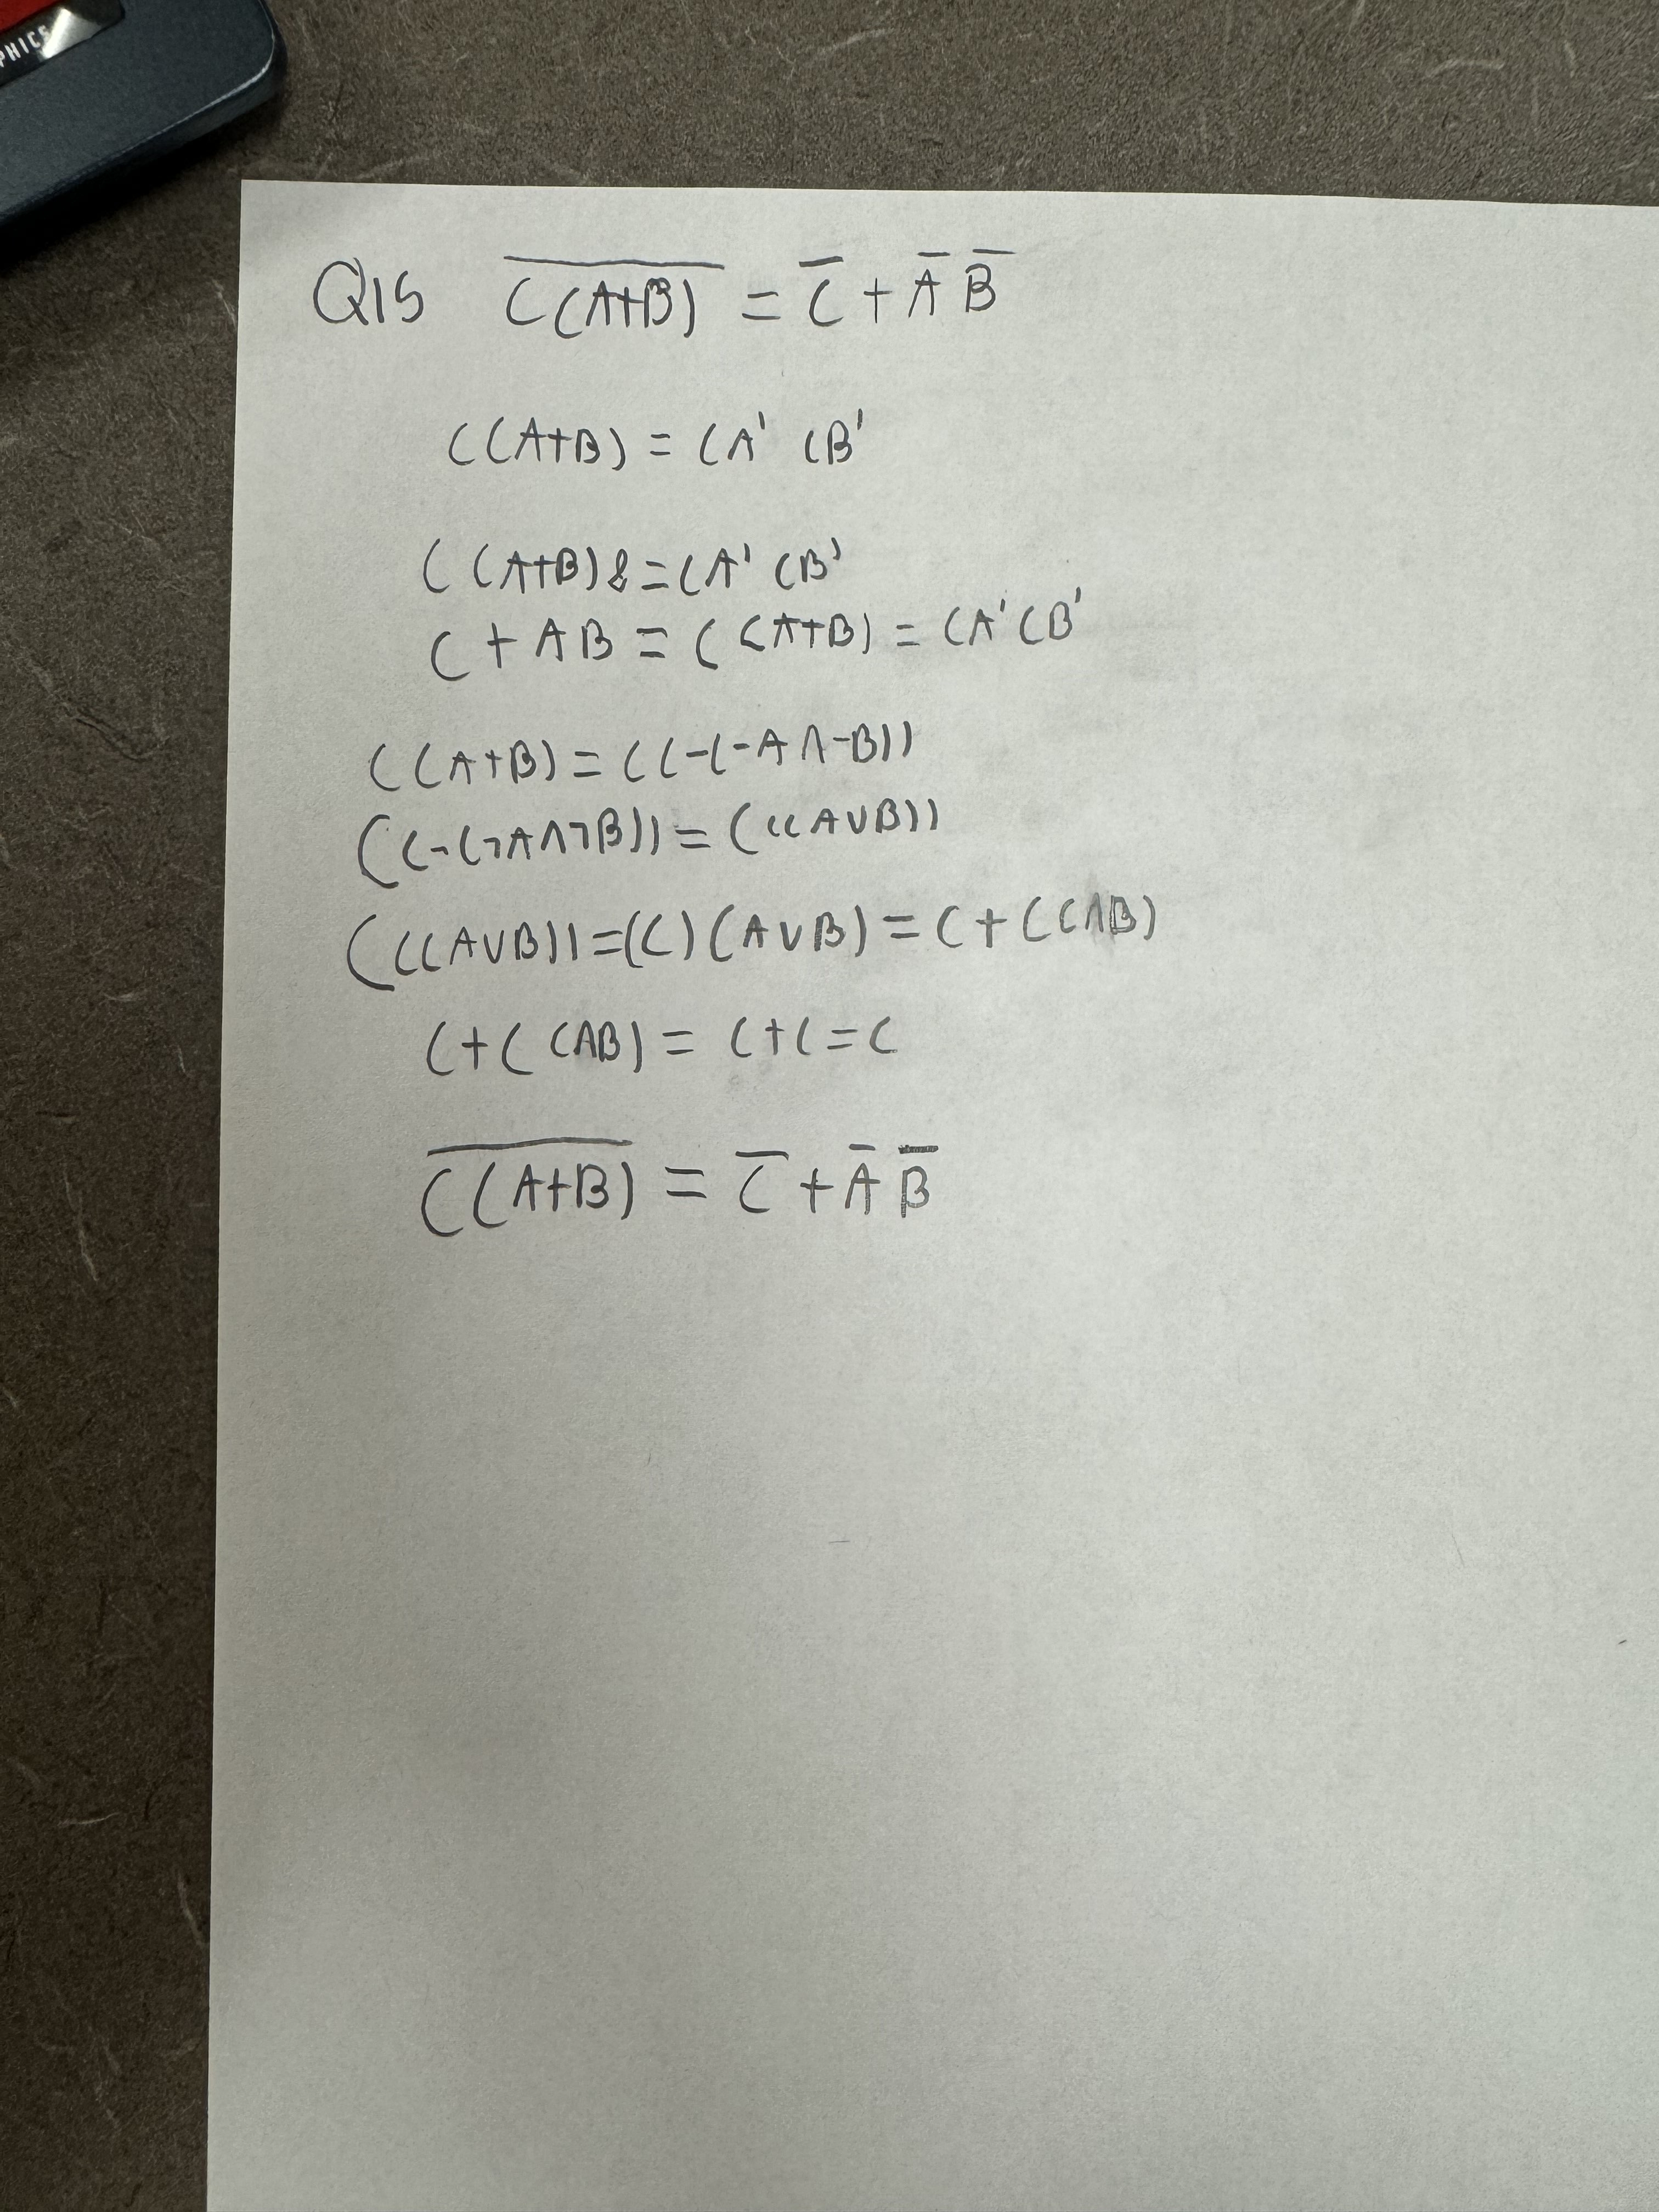 PHICS
Q15 \overline{C(A+B)} = \overline{C} + \overline{A} \overline{B}
C(A+B) = CA' CB'
C(A+B) = CA' CB'
C + AB = C(A+B) = CA'CB'
C(A+B) = C(¬(-A∧-B))
(C¬(¬A∧¬B)) = (C(A∨B))
(C(A∨B)) = (C)(A∨B) = C+C(AB)
C+C(AB) = C+C=C
\overline{C(A+B)} = \overline{C} + \overline{A} \overline{B}